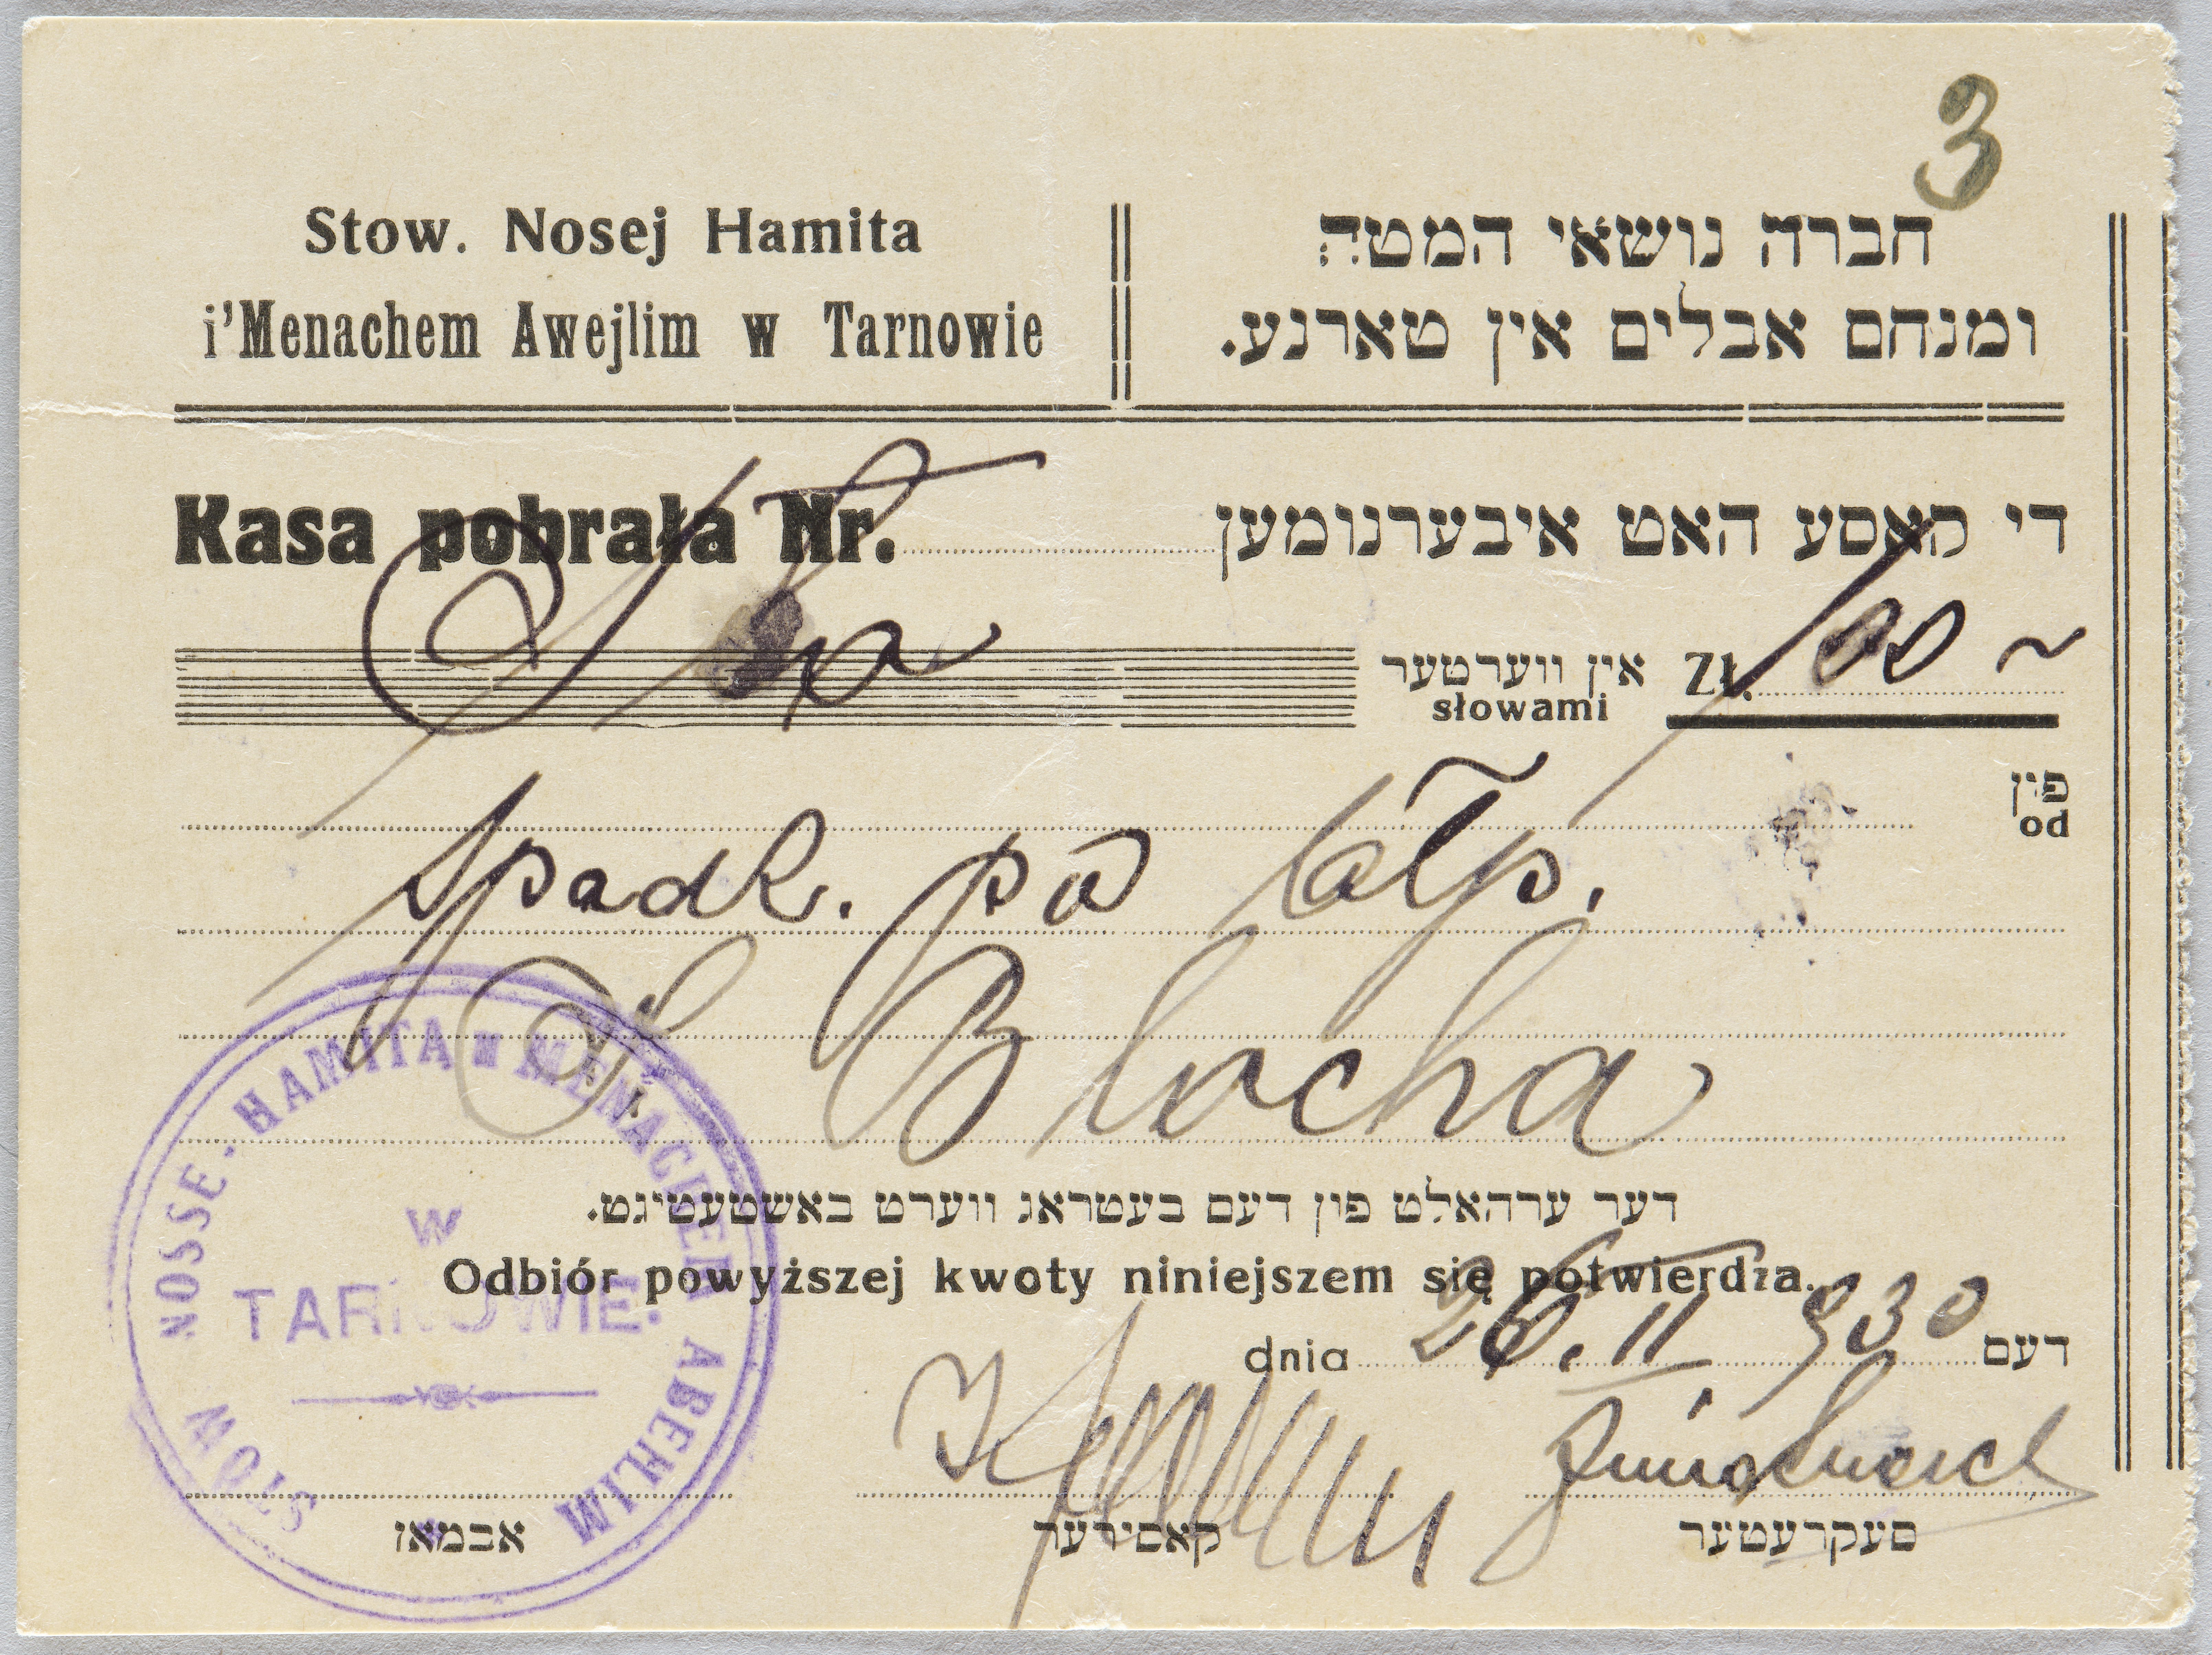 3
Stow. Nosej Hamita
i'Menachem Awejlim w Tarnowie
חברה נושאי המטה
ומנחם אבלים אין טארנע.
Kasa pobrała Nr.
די קאסע האט איבערנומען
Zł. 100 ~
אין ווערטער
słowami
Sto
פין
od
Spadk. po błp.
J. Blocha
דער ערהאלט פון דעם בעטראג ווערט באשטעטיגט.
Odbiór powyższej kwoty niniejszem się potwierdza.
dnia 26. II 930 דעם
סעקרעטער
קאסירער
אבמאן
STOW NOSSE. HAMITA W MENACHEM ABEHLIM
W
TARNOWIE.